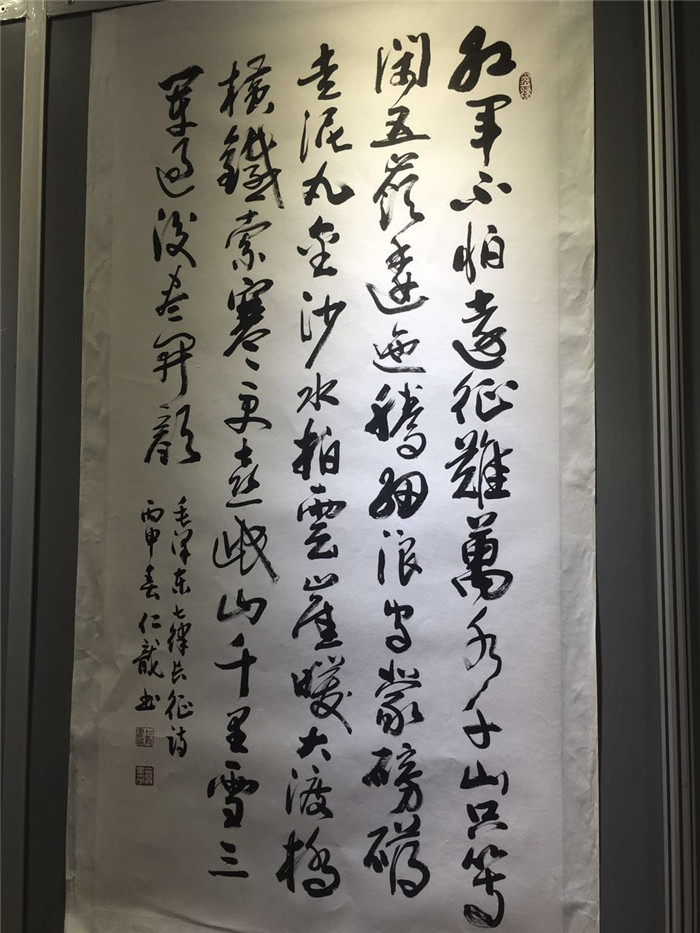 红军不怕遠征難萬水千山只等
闲五嶺逶迤腾细浪乌蒙磅礴
走泥丸金沙水拍雲崖暖大渡桥
横鐵索寒更喜岷山千里雪三
軍过後尽開颜
毛泽东七律长征诗
丙申春仁龍书